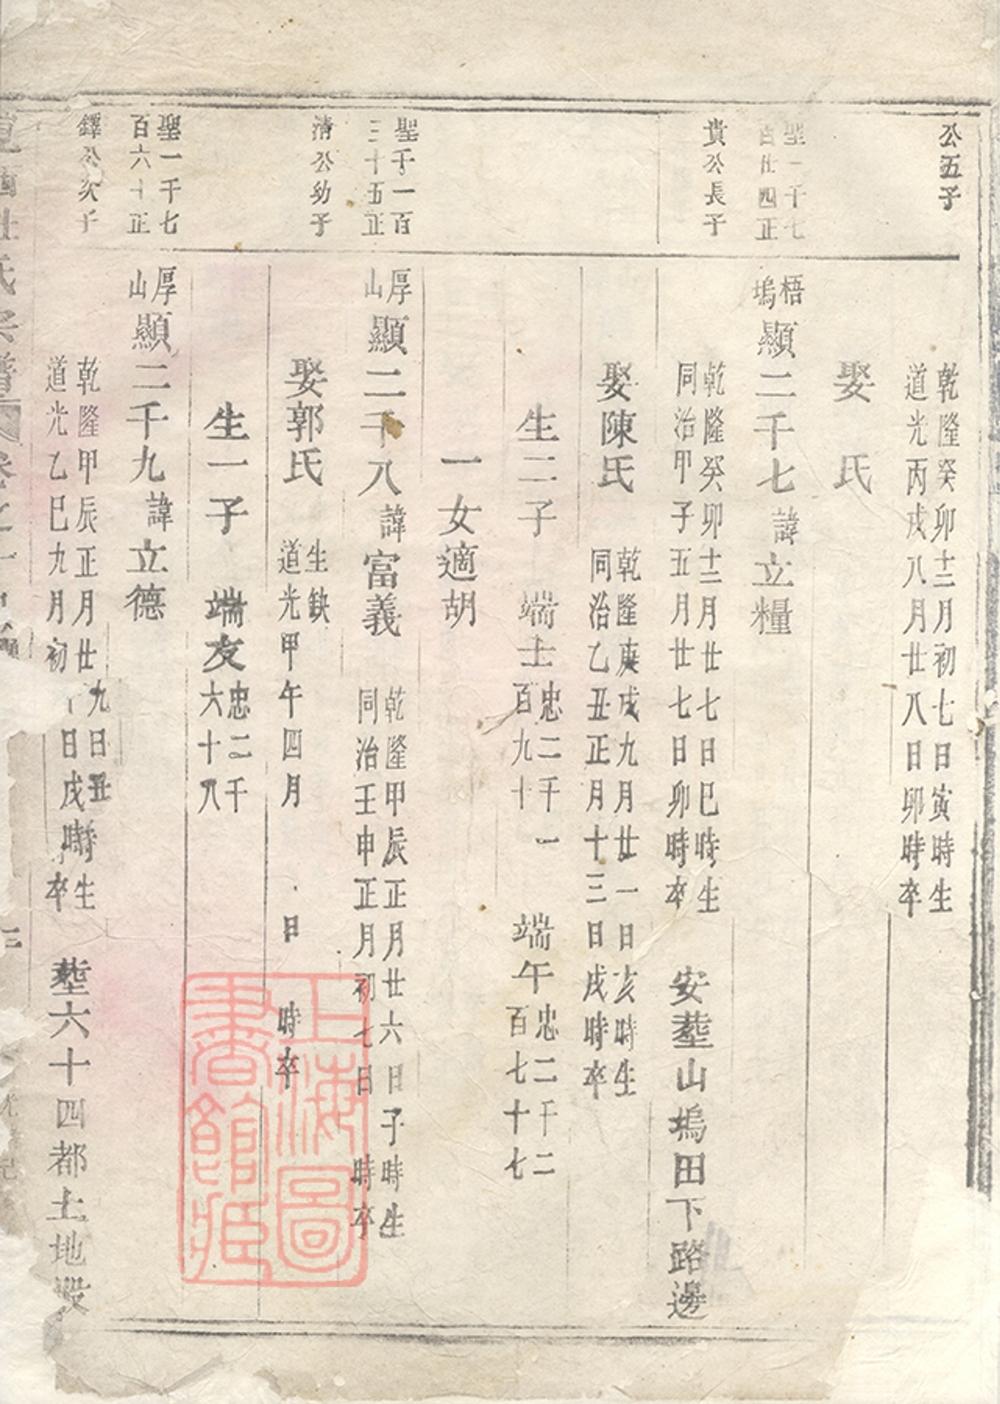 公五子
乾隆癸卯十二月初七日寅時生
道光丙戌八月廿八日卯時卒
娶　氏
聖一千七
百廿四正
梧塢顯二千七諱立糧
貴公長子
乾隆癸卯十二月廿七日巳時生
同治甲子五月廿七日卯時卒
安塟山塢田下路邊
娶陳氏
乾隆庚戌九月廿一日亥時生
同治乙丑正月十三日戌時卒
生二子
端士忠二千一百九十
端午忠二千二百七十七
一女適胡
聖千一百
三十五正
厚山顯二千八諱富義
乾隆甲辰正月廿六日子時生
同治壬申正月初七日　時卒
清公幼子
娶郭氏
生缺
道光甲午四月　日　時卒
生一子
端友忠二千六十八
聖一千七
百六十正
厚山顯二千九諱立德
鐸公次子
乾隆甲辰正月廿九日丑時生
道光乙巳九月初十日戌時卒
塟六十四都土地
氏宗譜
上海圖書館藏